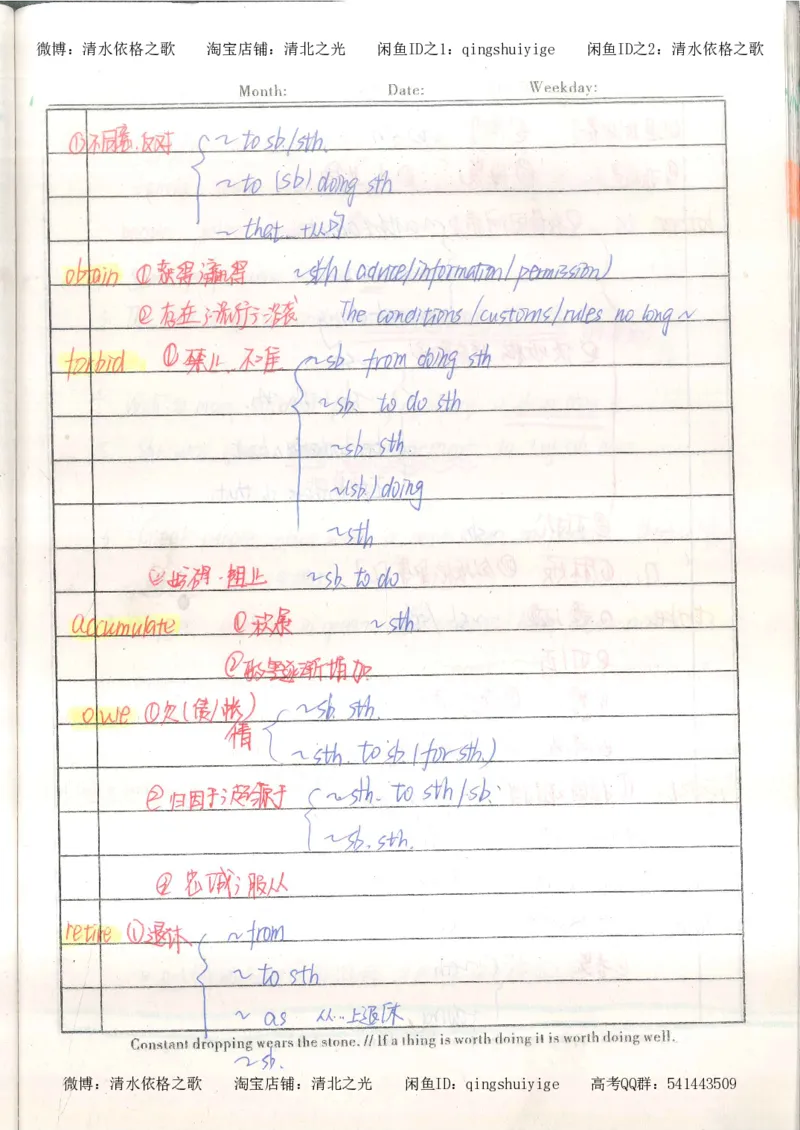 微博：清水依格之歌 淘宝店铺：清北之光 闲鱼ID之1：qingshuiyige 闲鱼ID之2：清水依格之歌
Month: Date: Weekday:
①不同意、反对 ~ to sb./sth.
~ to (sb) doing sth
~ that +从句
obtain ①获得；赢得 ~sth (advice/information/permission)
②存在；流行；沿袭 The conditions/customs/rules no long ~
forbid ①禁止、不准 ~sb. from doing sth
~sb. to do sth
~sb sth.
~(sb.) doing
~sth
②妨碍、阻止 ~sb. to do
accumulate ①积累 ~sth.
②数量逐渐增加
owe ①欠(债/帐) ~sb. sth.
情 ~sth. to sb. (for sth.)
②归因于；起源于 ~sth. to sth/sb.
~sb. sth.
③忠诚；服从
retire ①退休 ~from
~to sth
~ as 从...上退休
Constant dropping wears the stone. // If a thing is worth doing it is worth doing well.
~sb.
微博：清水依格之歌 淘宝店铺：清北之光 闲鱼ID：qingshuiyige 高考QQ群：541443509